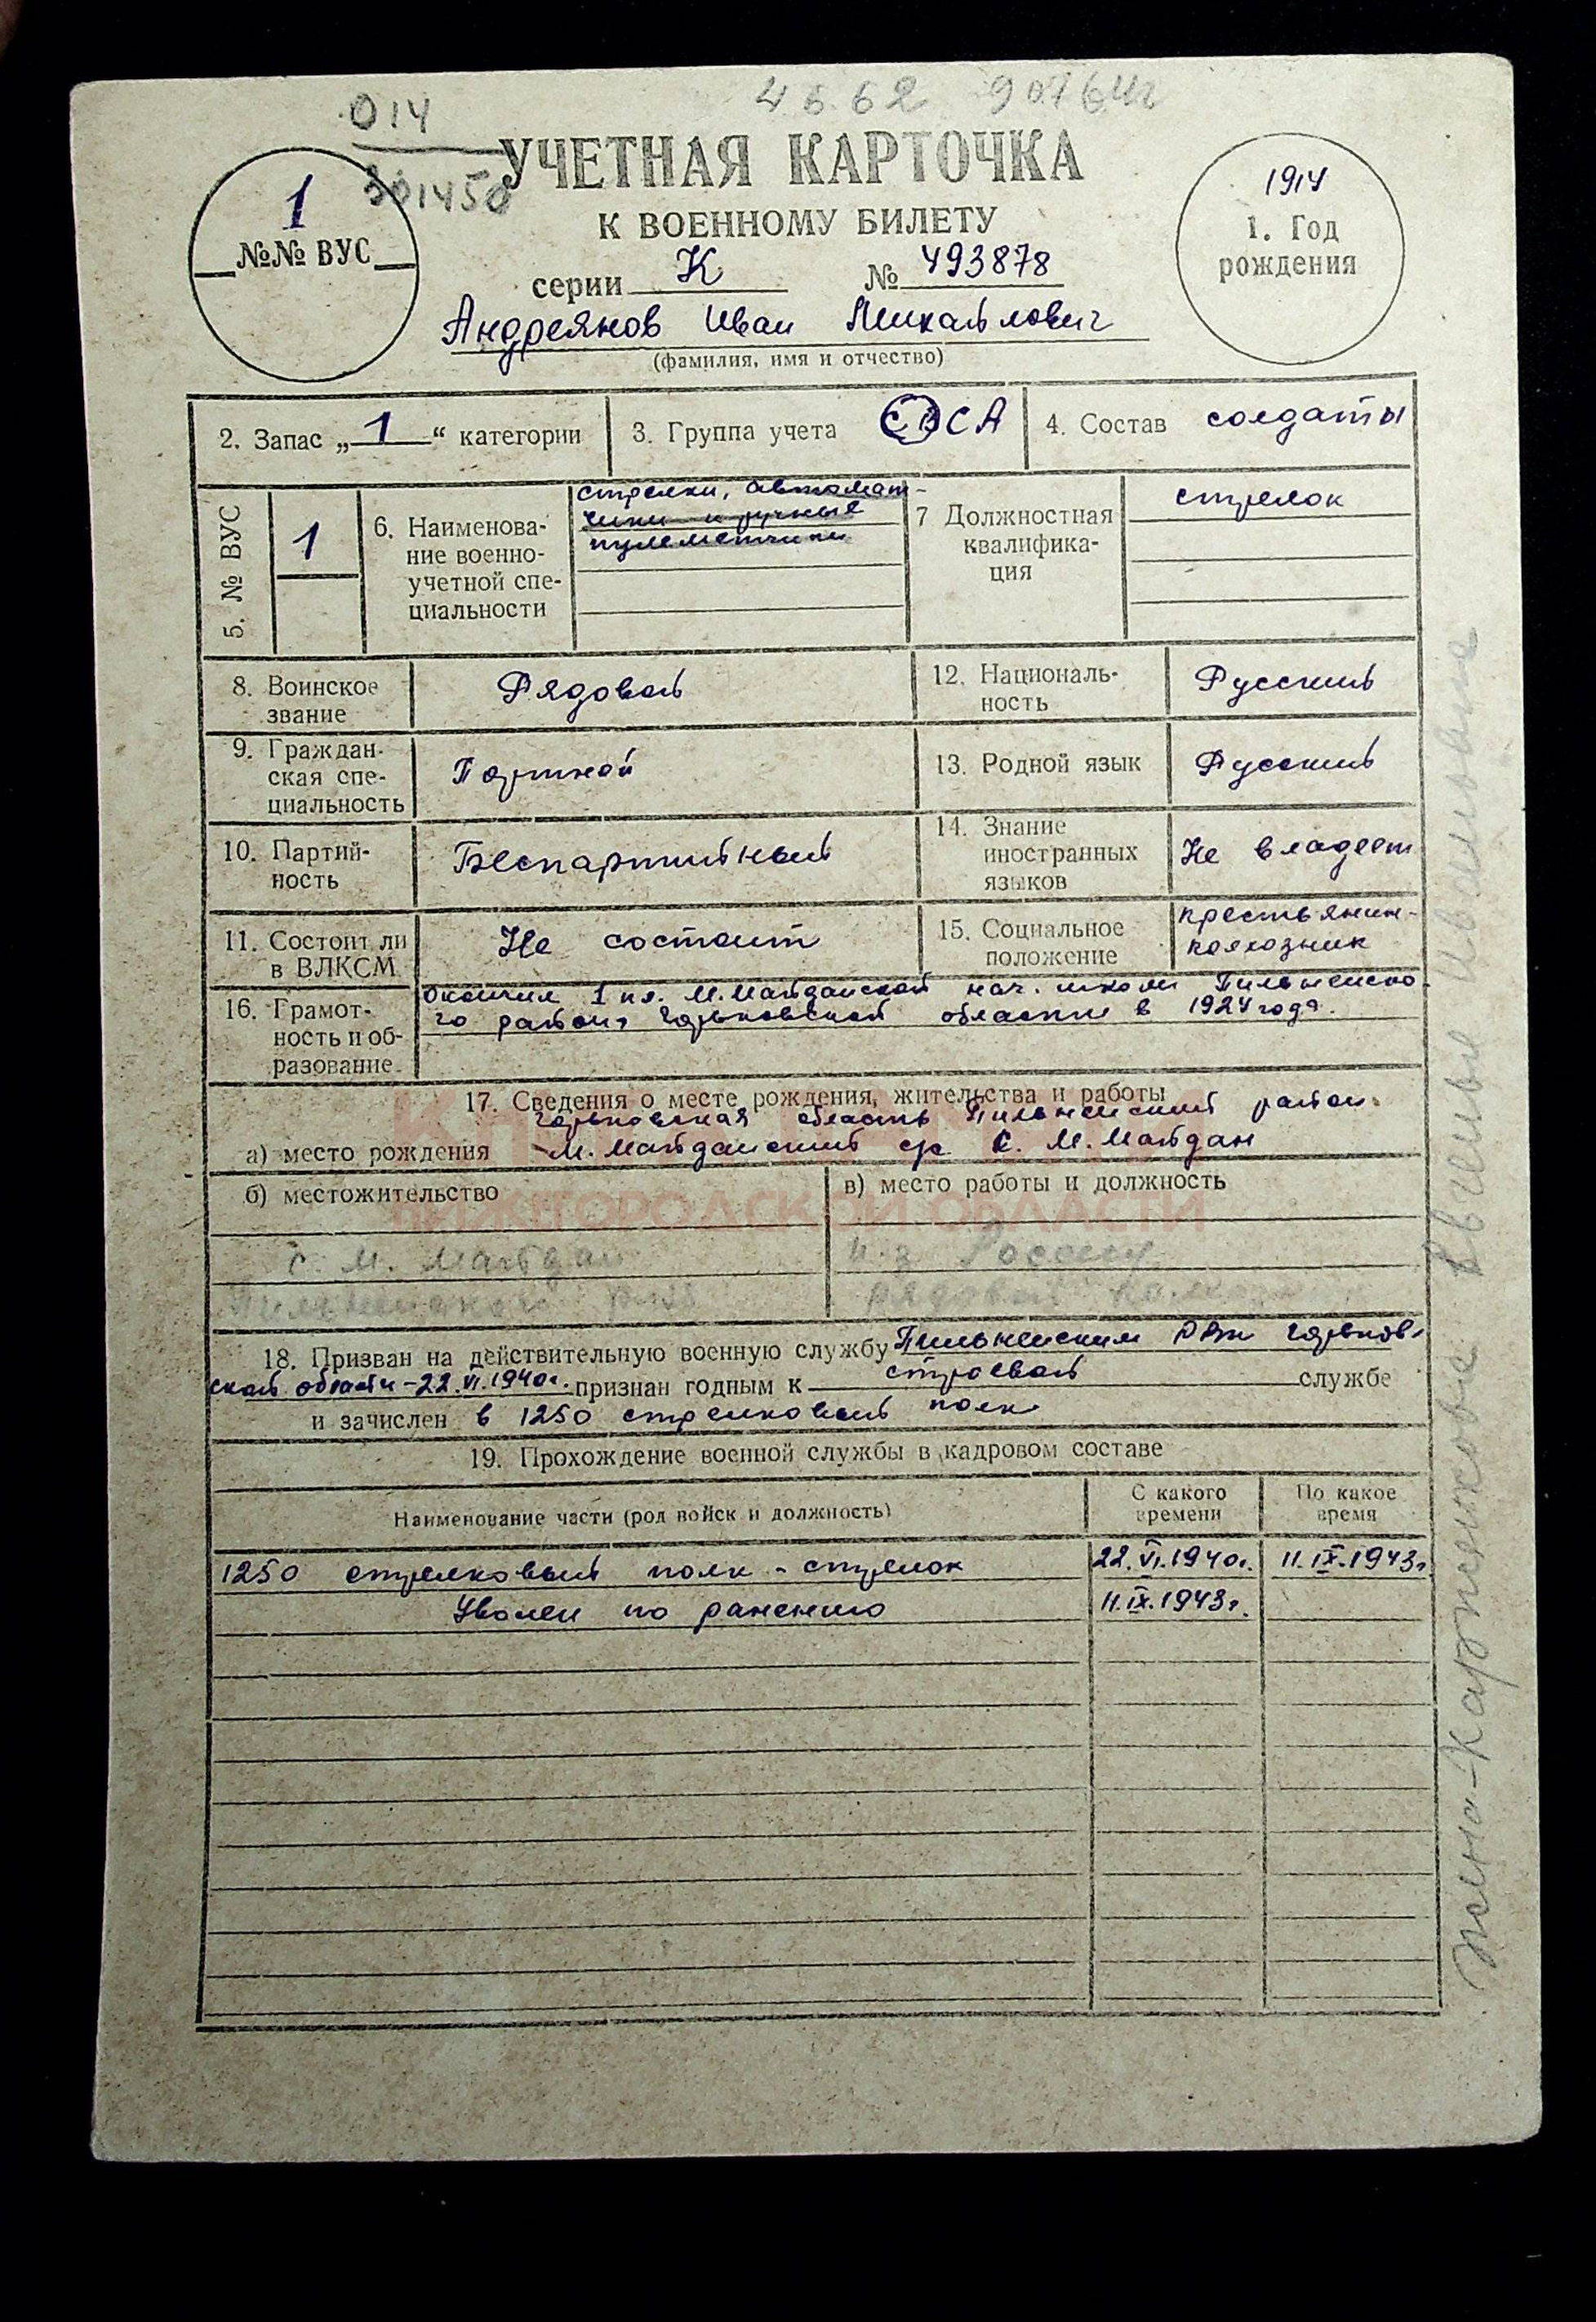 014
301450
УЧЕТНАЯ КАРТОЧКА
К ВОЕННОМУ БИЛЕТУ
1
№№ ВУС
серии К № 493878
1914
1. Год
рождения
Андреянов Иван Михайлович
(фамилия, имя и отчество)
2. Запас „1“ категории
3. Группа учета СА
4. Состав солдаты
5. № ВУС
1
6. Наименова-
ние военно-
учетной спе-
циальности
стрелки, автомат-
чики и ручные
пулеметчики
7 Должностная
квалифика-
ция
стрелок
8. Воинское
звание
Рядовой
12. Националь-
ность
Русский
9. Граждан-
ская спе-
циальность
Портной
13. Родной язык
Русский
10. Партий-
ность
Беспартийный
14. Знание
иностранных
языков
Не владеет
11. Состоит ли
в ВЛКСМ
Не состоит
15. Социальное
положение
крестьянин-
колхозник
16. Грамот-
ность и об-
разование
Окончил 1 кл. М.Майданской нач. школы Пильненско-
го района Горьковской области в 1924 года.
17. Сведения о месте рождения, жительства и работы
Горьковская область Пильненский район.
а) место рождения М.Майданский с/с с. М.Майдан
б) местожительство
в) место работы и должность
НИЖЕГОРОДСКОЙ ОБЛАСТИ
с. М. Майдан
к-з
Пильненского р-на
рядовой
18. Призван на действительную военную службу Пильненским РВК Горьков-
ской области - 22.VI.1940г. признан годным к строевой службе
и зачислен в 1250 стрелковый полк
19. Прохождение военной службы в кадровом составе
Наименование части (род войск и должность)
С какого
времени
По какое
время
1250 стрелковый полк - стрелок 22.VI.1940г. 11.IX.1943г.
Уволен по ранению 11.IX.1943г.
жена-